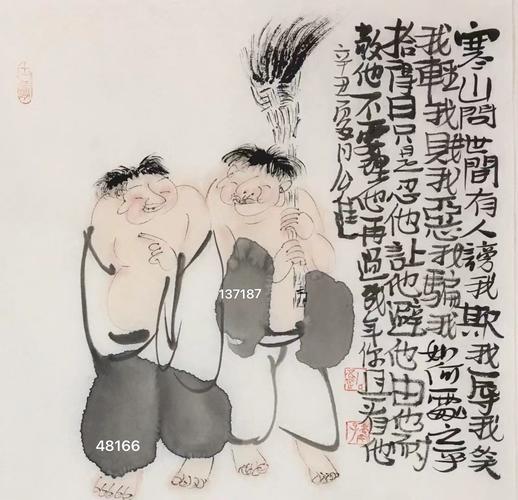 寒山問世間有人謗我欺我辱我笑
我輕我賤我惡我騙我如何處之乎
拾得曰只是忍他讓他避他由他耐
敬他不要理他再過幾年你且看他
辛丑夏月
137187
48166